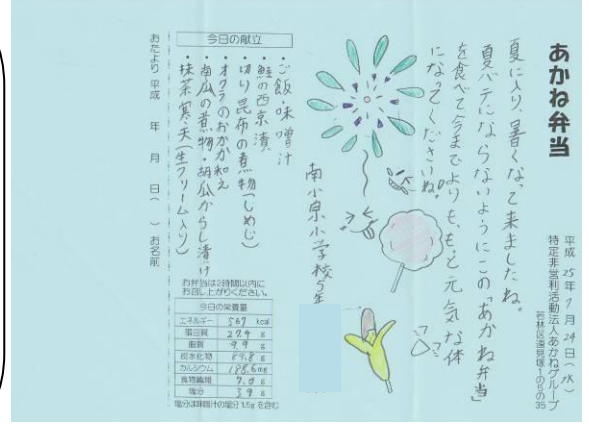 あかね弁当
平成 25年 7月 24日(水)
特定非営利活動法人あかねグループ
若林区遠見塚1の5の35
夏に入り、暑くなって来ましたね。
夏バテにならないようにこの「あかね弁当」
を食べて今までよりも、もっと元気な体
になってくださいね。
南小泉小学校5年
今日の献立
・ご飯・味噌汁
・鮭の西京漬
・切り昆布の煮物(しめじ)
・オクラのおかか和え
・南瓜の煮物・胡瓜からし漬け
・抹茶寒天(生クリーム入り)
お弁当は2時間以内に
お召し上がりください。
今日の栄養量
エネルギー 567 kcal
蛋白質 27.9 g
脂質 9.9 g
炭水化物 89.8 g
カルシウム 198.6mg
食物繊維 7.0 g
塩分 3.9 g
塩分は味噌汁の塩分 1.5g を含む
おたより 平成 年 月 日( ) お名前